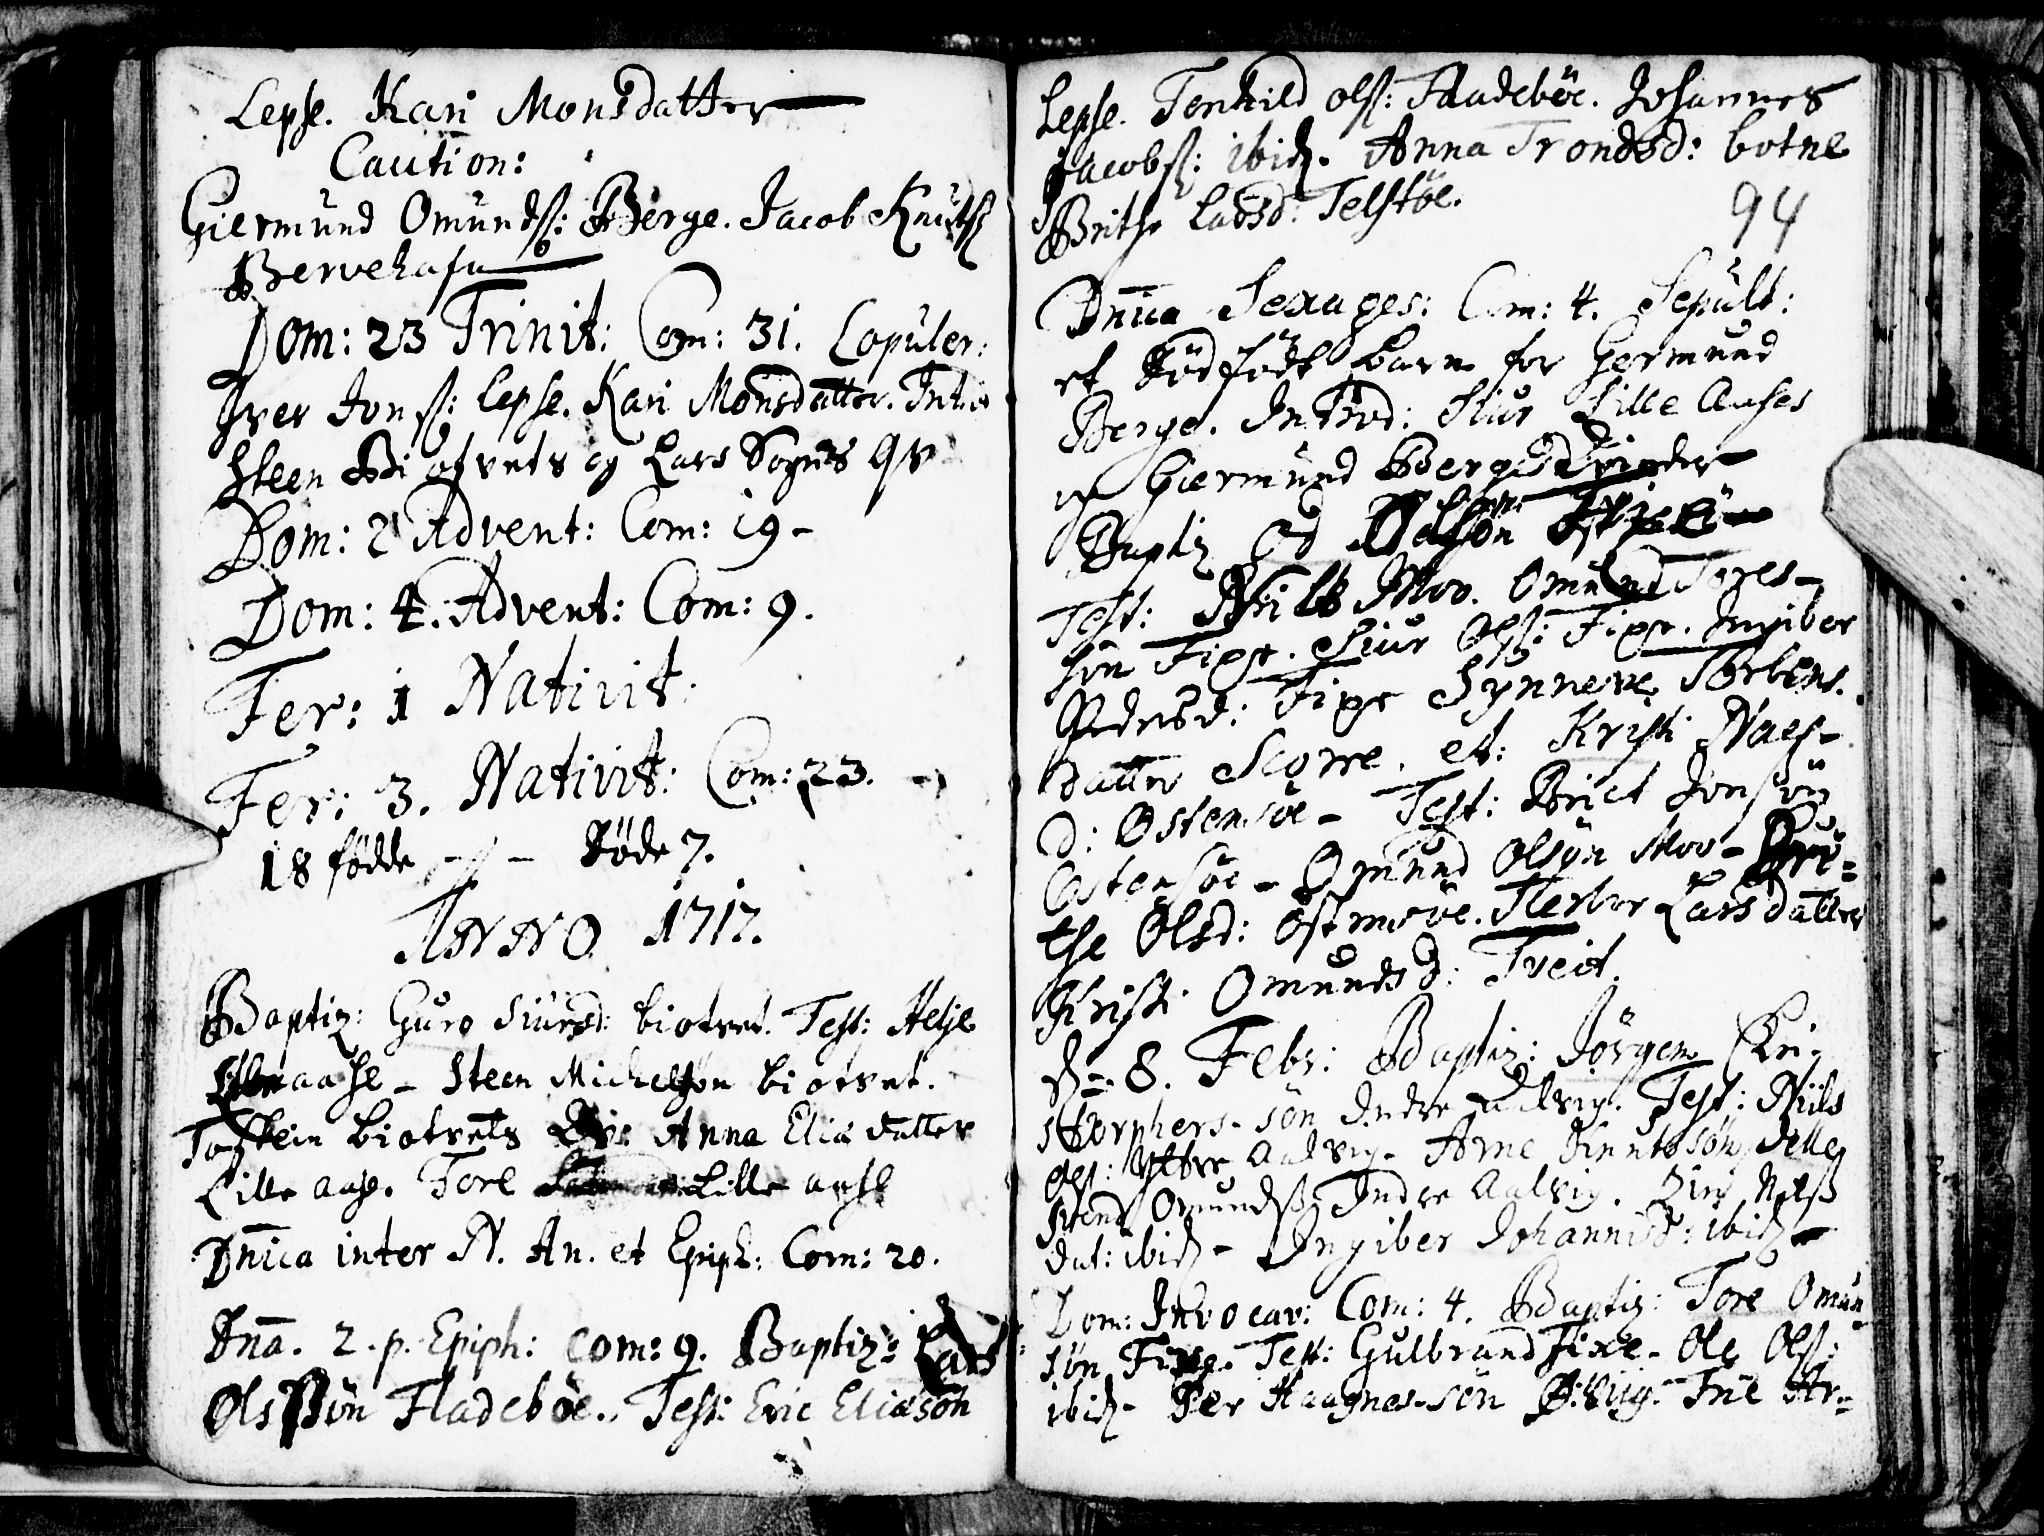 Lepse. Kari Monsdatter
Caution:
Giermund Omunds: Berge. Jacob Knuts
Bervehafn
Dom: 23 Trinit: Com: 31. Copuler:
Iver Jons: Lepse. Kari Monsdatter.
Steen Biotvets og Lars Sognes qv
Dom: 2 Advent: Com: 19 -
Dom: 4. Advent: Com: 9.
Fer: 1 Nativit:
Fer: 3. Nativit: Com: 23.
18 födde - - Döde 7.
ANNO 1717.
Baptiz: Guro Siursd: biotvet. Test: Helje
- Steen Michelsøn biotvet.
Torstein biotvets Anna Eliædatter
Lille aase. Tore Lille aase
Dnica inter N. An. et Epiph: Com: 20.
Dnã. 2. p. Epiph: Com: 9. Baptiz: Lars
Olssön Fladeböe. Test: Eric Eliasön
Lepse. Torkild ols: Fladeböe. Johannes
Jacobs: ibid. Anna Trondsd: botne
Brithe Larsd: Telstöe.
94
Dnica Sexages: Com: 4. Sepult:
et Dödfödt barn for Germund
Berge. Introd: Siur Lille Aases
og Giermund Berges
Baptiz Od
Test: Niels Moo. Omund Tores-
sön Fixe. Siur Ols: Fixe. Ingiber
Pedersd: Fixe Synneve Torbens-
datter Scorre. et: Kristi Naes-
d: Ostensöe - Test: Brict Jonsön
Ostensöe - Omund Olsøn Moo -
the Olsd: Ostensöe. Herbor Larsdatter
Kristi Omundsd: Tveit.
d. 8. Febr: Baptiz: Jörgen Chri-
stophers-sön Indre Aalvig. Test: Niils
Ols: Yttre Aalvig. Arne Knutssön
Omunds Indre Aalvig. Niels
dat: ibid - Ingiber Johannisd: ibid -
Dom: Invocav: Com: 4. Baptiz: Tore Omun-
sön Fixe. Test: Gulbrand Fixe - Ole Ols:
ibid - Per Haagnes-sön